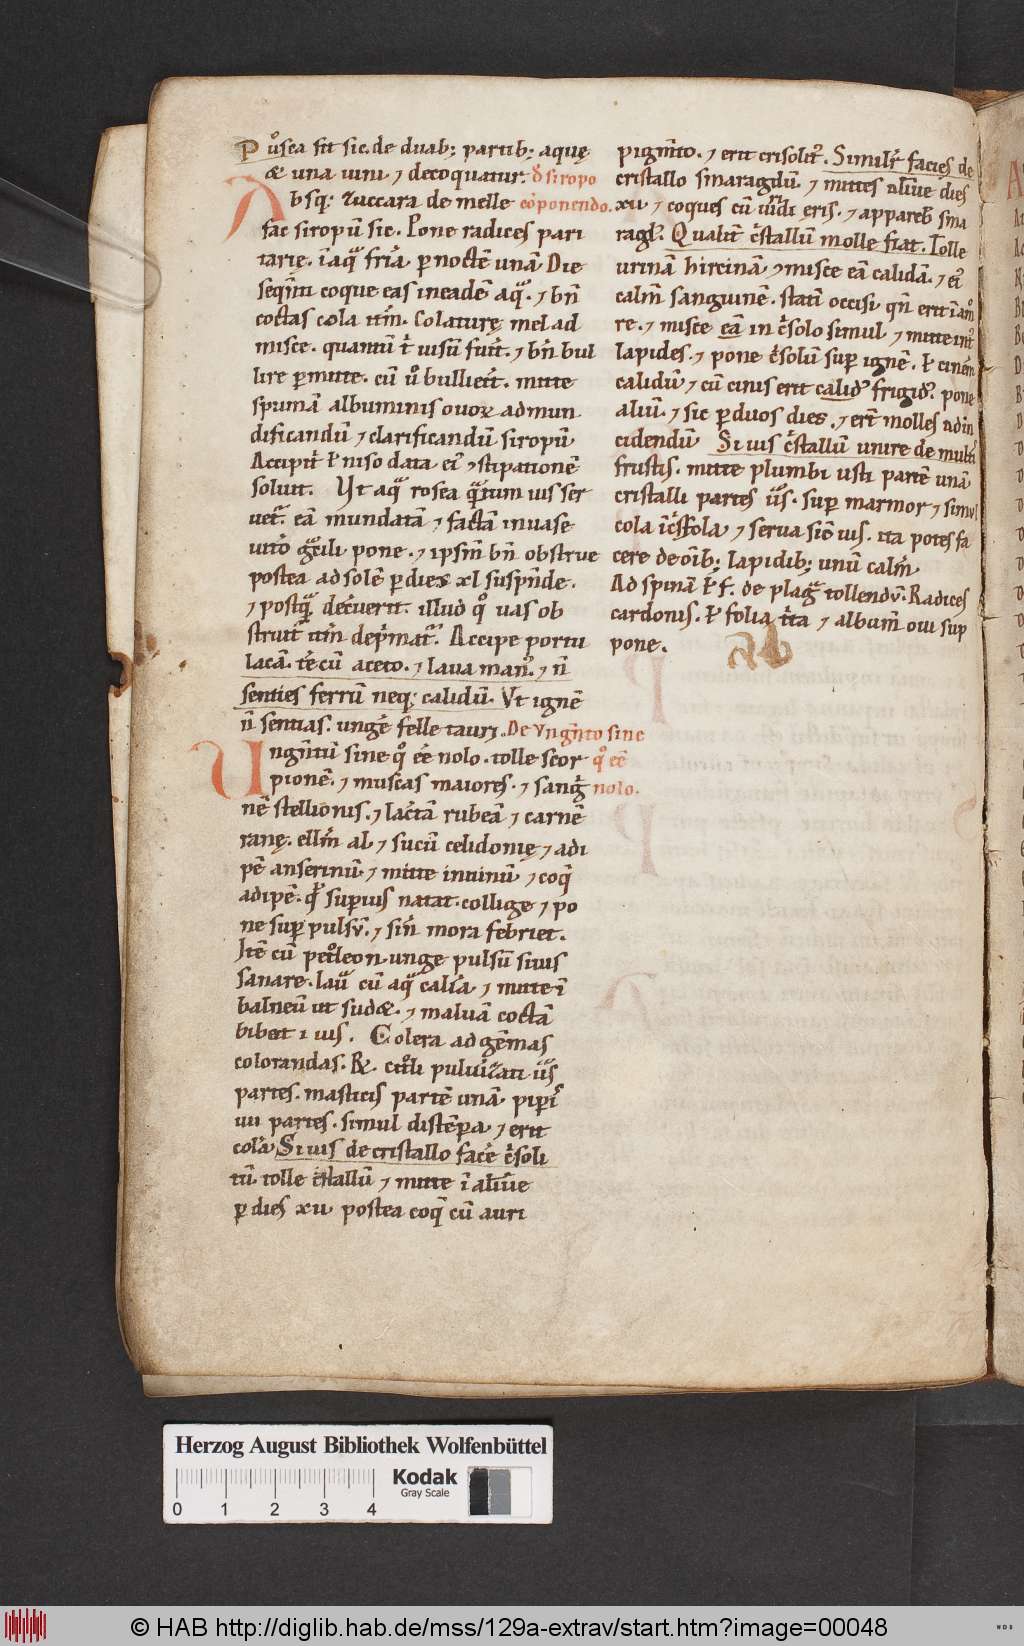 Pusca fit sic. de duab; partib; aquę
& una uini ⁊ decoquatur. d̄ siropo
Absq; zuccara de melle cōponendo.
fac siropū sic. Pone radices pari
tarię. ī aq̄ fri͛a ꝑ noctē unā Die
seq̄nti coque eas in eadē aq̄. ⁊ bn̄
coctas cola itm̄. Colaturę mel ad
misce. quantū t̄ uisū fuīt. ⁊ bn̄ bul
lire ꝑmitte. cū u͛o bullieīt. mitte
spumā albuminis ouoꝝ ad mun
dificandū ⁊ clarificandū siropū
Accipit͛ ł niso data ei͛ ↄstipationē
soluit. Vt aq̄ rosea q̄tum uis ser
uet͛. eā mundatā ⁊ factā in uase
uitͦo gͣcili pone. ⁊ ipsm̄ bn̄ obstrue
postea ad solē ꝑ dies xl suspn̄de.
⁊ postq̄ decͤuerit. illud qͦ uas ob
struit͛ itm̄ dep͛matͬ. Accipe portu
lacā. tͤe cū aceto. ⁊ laua man͛. ⁊ n̄
senties ferrū neq; calidū. Vt ignē
n̄ sentias. ungē felle tauri. De Vngn̄to sine
Ungn̄tū sine qͦ ēē nolo. tolle scor qͦ ēē
pionē. ⁊ muscas maiores. ⁊ sanḡ nolo.
nē stellionis. ⁊ lac̄tā rubeā ⁊ carnē
ranę. ellm̄ al ⁊ sucū celidonię ⁊ adi
pē anserinū ⁊ mitte in uinū ⁊ coq̄
adipē. q̄ suꝑius natat. colligę ⁊ po
ne suꝑ pulsū. ⁊ sin̄ mora febriet.
Itē cū petͦleon unge pulsū si uis
sanare. lauͣ cū aq̄ cali͛a ⁊ mitte ī
balneū ut sud&. ⁊ maluā coctā
bibat ī uis. Colera ad gēmas
colorandas. R&. citͦli puluīzati ii͛s
partes. masticis partē unā piꝑi͛
iii partes. simul distēꝑa ⁊ erit
colͦa Si uis de cristallo facͤe c͛soli
tū tolle c͛stallū ⁊ mitte ī alūe
ꝑ dies xii postea coq̄ cū auri
pigm̄to. ⁊ erit crisolit͛. Similr̄ facięs de
cristallo smaragdū ⁊ mittes alūe dies
xii ⁊ coques cū uͥdi ęris. ⁊ appareb̄ sma
ragd͛. Qualit̄ c͛stallū molle fiat. Tolle
urinā hircinā ⁊ misce eā calidā. ⁊ ei͛
calm̄ sanguinē. statī occisi qn̄ erit ī amͦ
re. ⁊ misce eā in c͛solo simul ⁊ mitte int͛
lapides. ⁊ pone c͛solū suꝑ ignē. ł cinēm
calidū ⁊ cū cinis erit calid͛ frigid͛. pone
aliū. ⁊ sic ꝑ duos dies. ⁊ ert̄ molles ad in
cidendū Si uis c͛stallū unire de multi͛
frustis. mitte plumbi usti partē unā
cristalli partes ii͛s. suꝑ marmor ⁊ simul
cola ī c͛stola ⁊ serua sic̄ uis. ita potes fa
cere de oīb; lapidib; unū calm̄
Ad spinā ł f. de plagͣ tollendū. Radices
cardonis. ł folia t͛ta ⁊ albumī oui sup
pone.
Herzog August Bibliothek Wolfenbüttel
Kodak
Gray Scale
0 1 2 3 4
© HAB http://diglib.hab.de/mss/129a-extrav/start.htm?image=00048